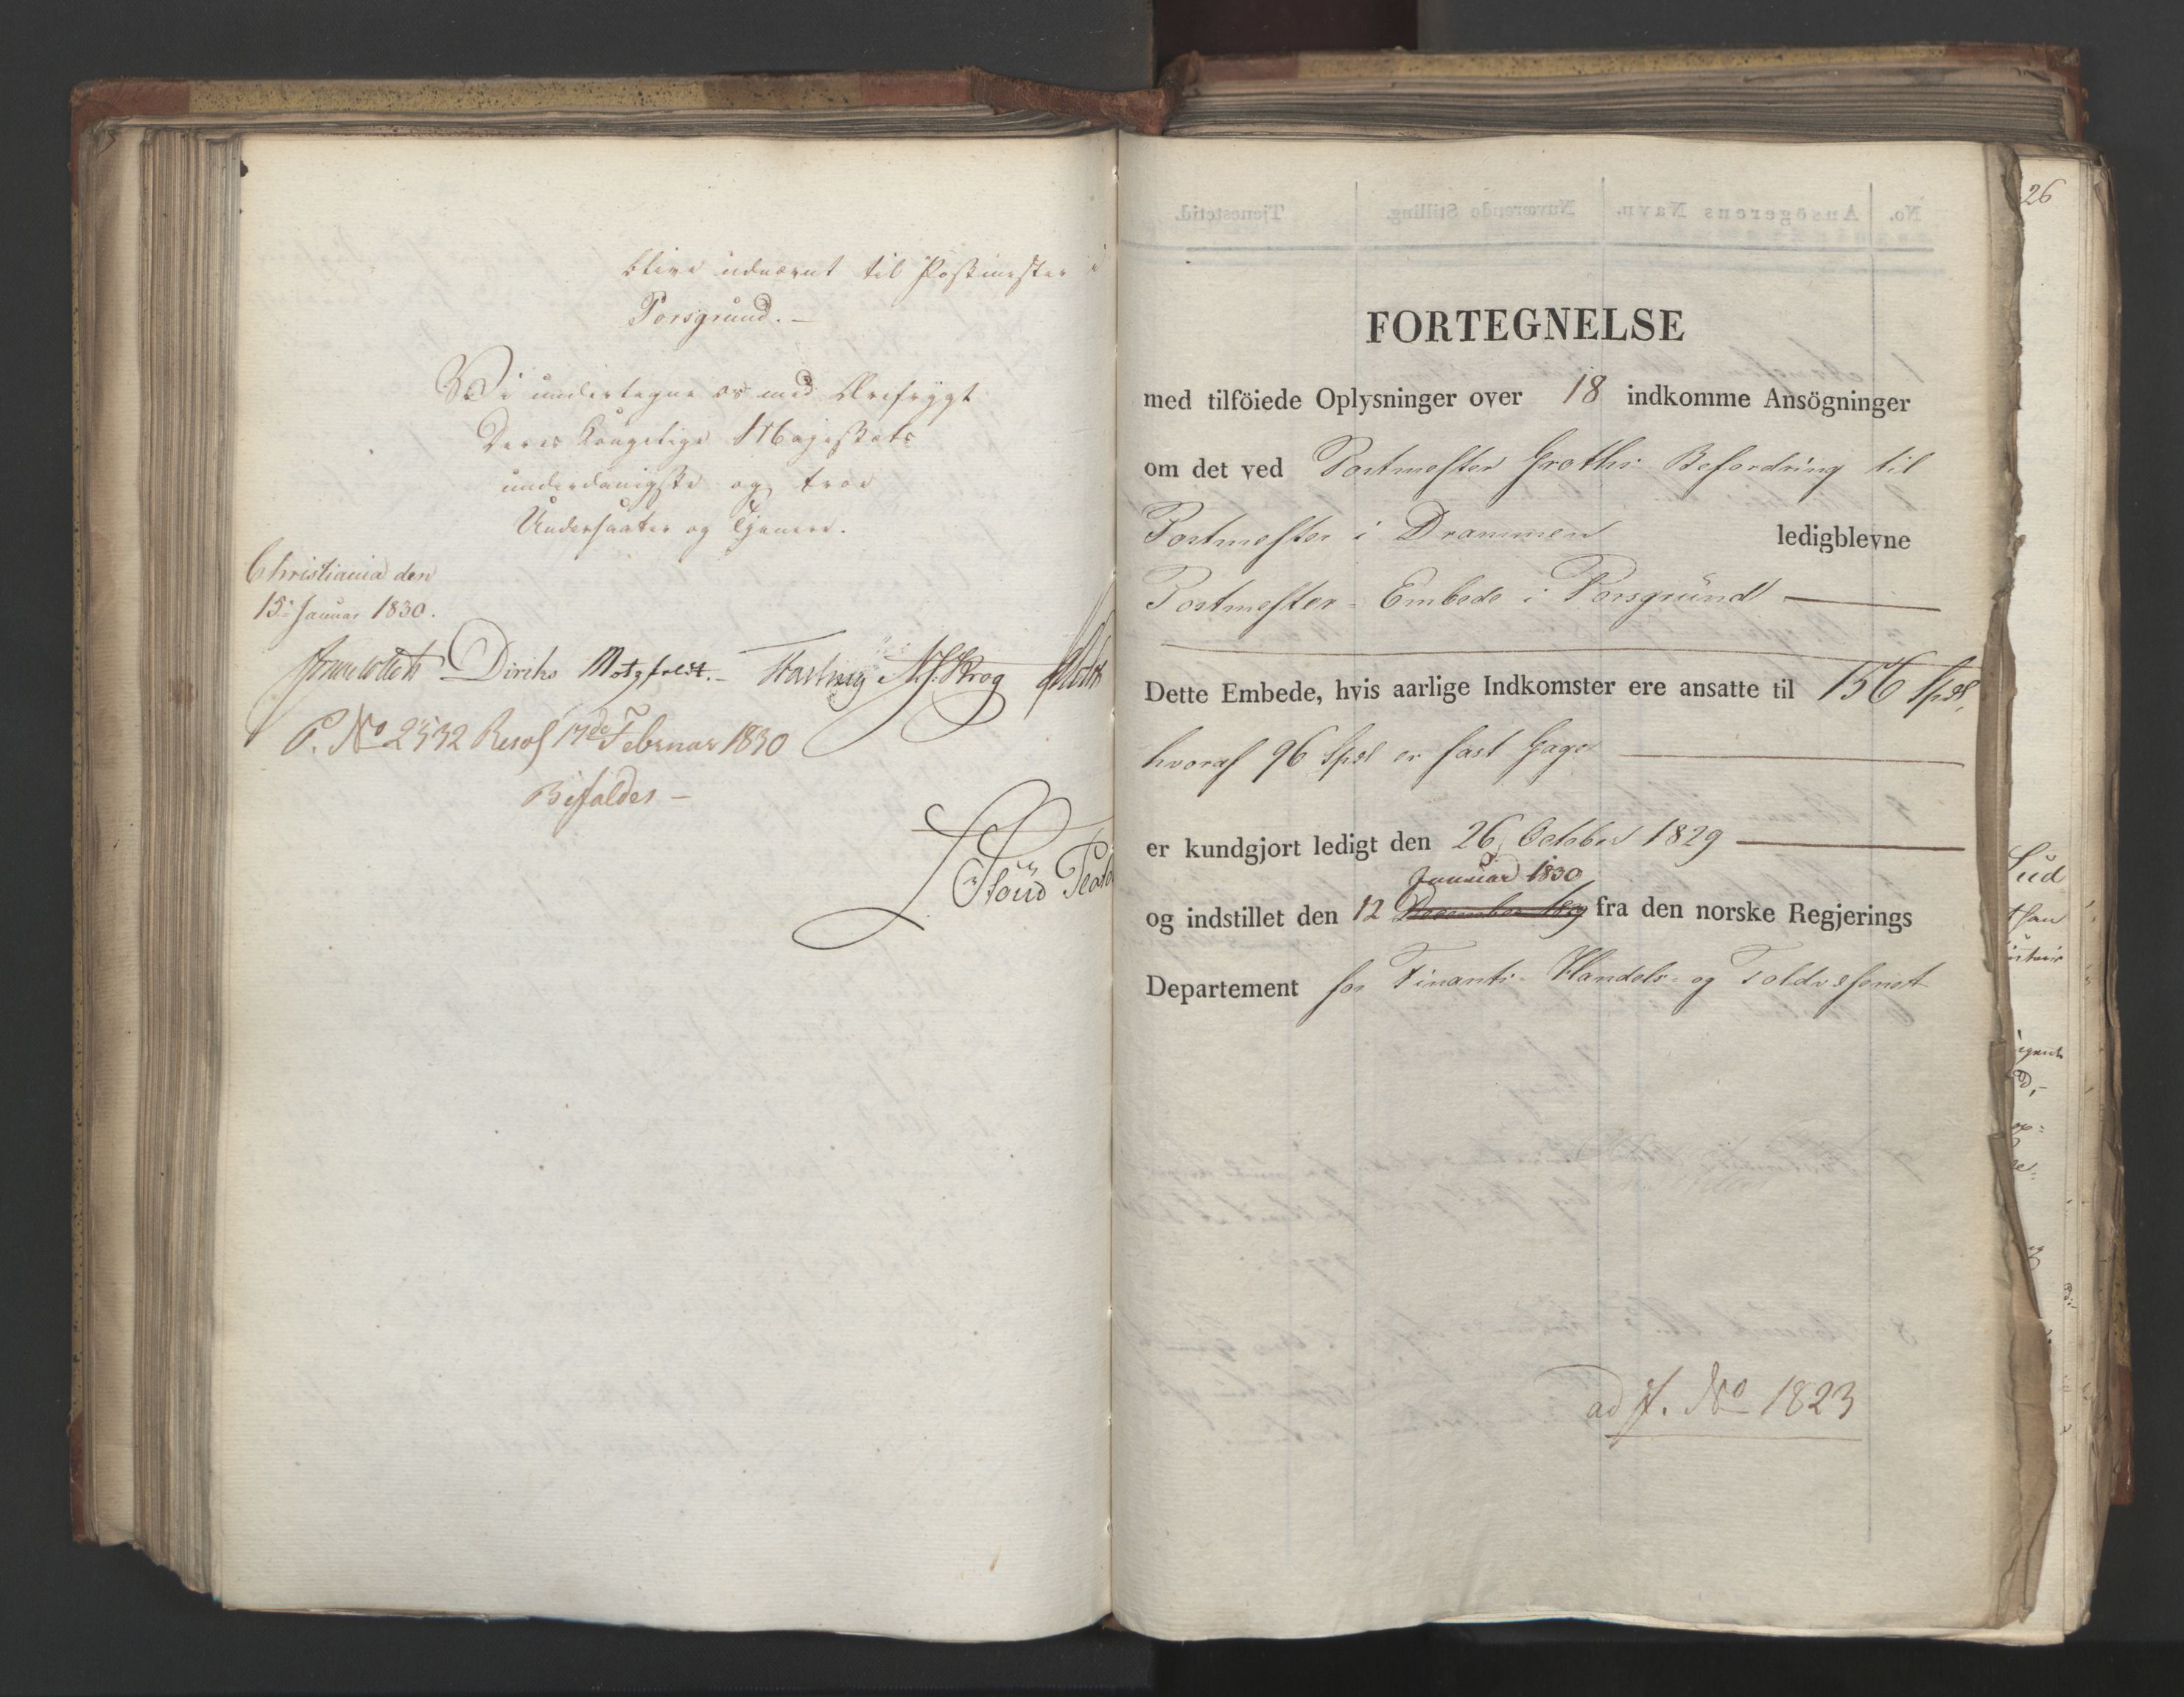 blive udnævnt til Postmester i
Porsgrund. –
Vi undertegne os med Ærefrygt
Deres Kongelige Majestæts
underdanigste og troe
Undersaatter og Tjenere.
Christiania den
15de Januar 1830.
Diriks Motzfeldt. – Fasting Krog
P. No 2532 Resol 17de Februar 1830
Bifaldes –
No. Ansögerens Navn. Nuværende Stilling. Tjenestetid.
FORTEGNELSE
med tilföiede Oplysninger over 18 indkomne Ansögninger
om det ved Postmester Groths Befordring til
Postmester i Drammen ledigblevne
Postmester-Embede i Porsgrund
Dette Embede, hvis aarlige Indkomster ere ansatte til 156 Spd,
hvoraf 96 Spd er fast Gage
er kundgjort ledigt den 26 October 1829
Januar 1830
og indstillet den 12 December 1829 fra den norske Regjerings
Departement for Finants- Handels- og Toldvæsenet
ad f. No 1823
26